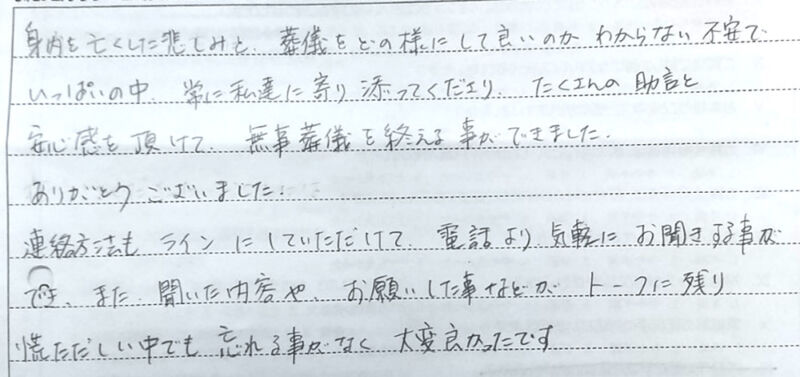 身内を亡くした悲しみと、葬儀をどの様にして良いのか わからない 不安で
いっぱいの中、常に私達に寄り添ってくださり、たくさんの助言と
安心感を頂けて、無事葬儀を終える事ができました。
ありがとうございました!
連絡方法も ラインにしていただけて、電話より 気軽に お聞きする事が
でき、また、聞いた内容や、お願いした事などが トークに残り
慌ただしい中でも 忘れる事がなく 大変良かったです